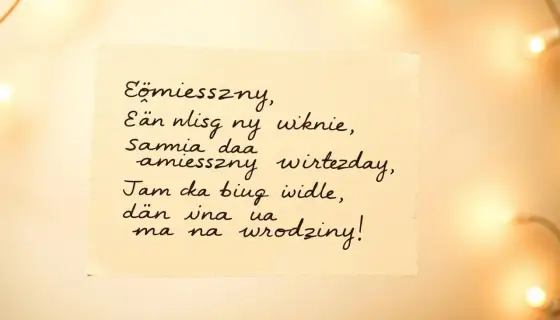 Eömiesszny,
Eän nlisg ny wiknie,
Sammia daa
amiesszny wirtezday,
Jam cka biug widle,
dän ina ua
ma na wrodziny!